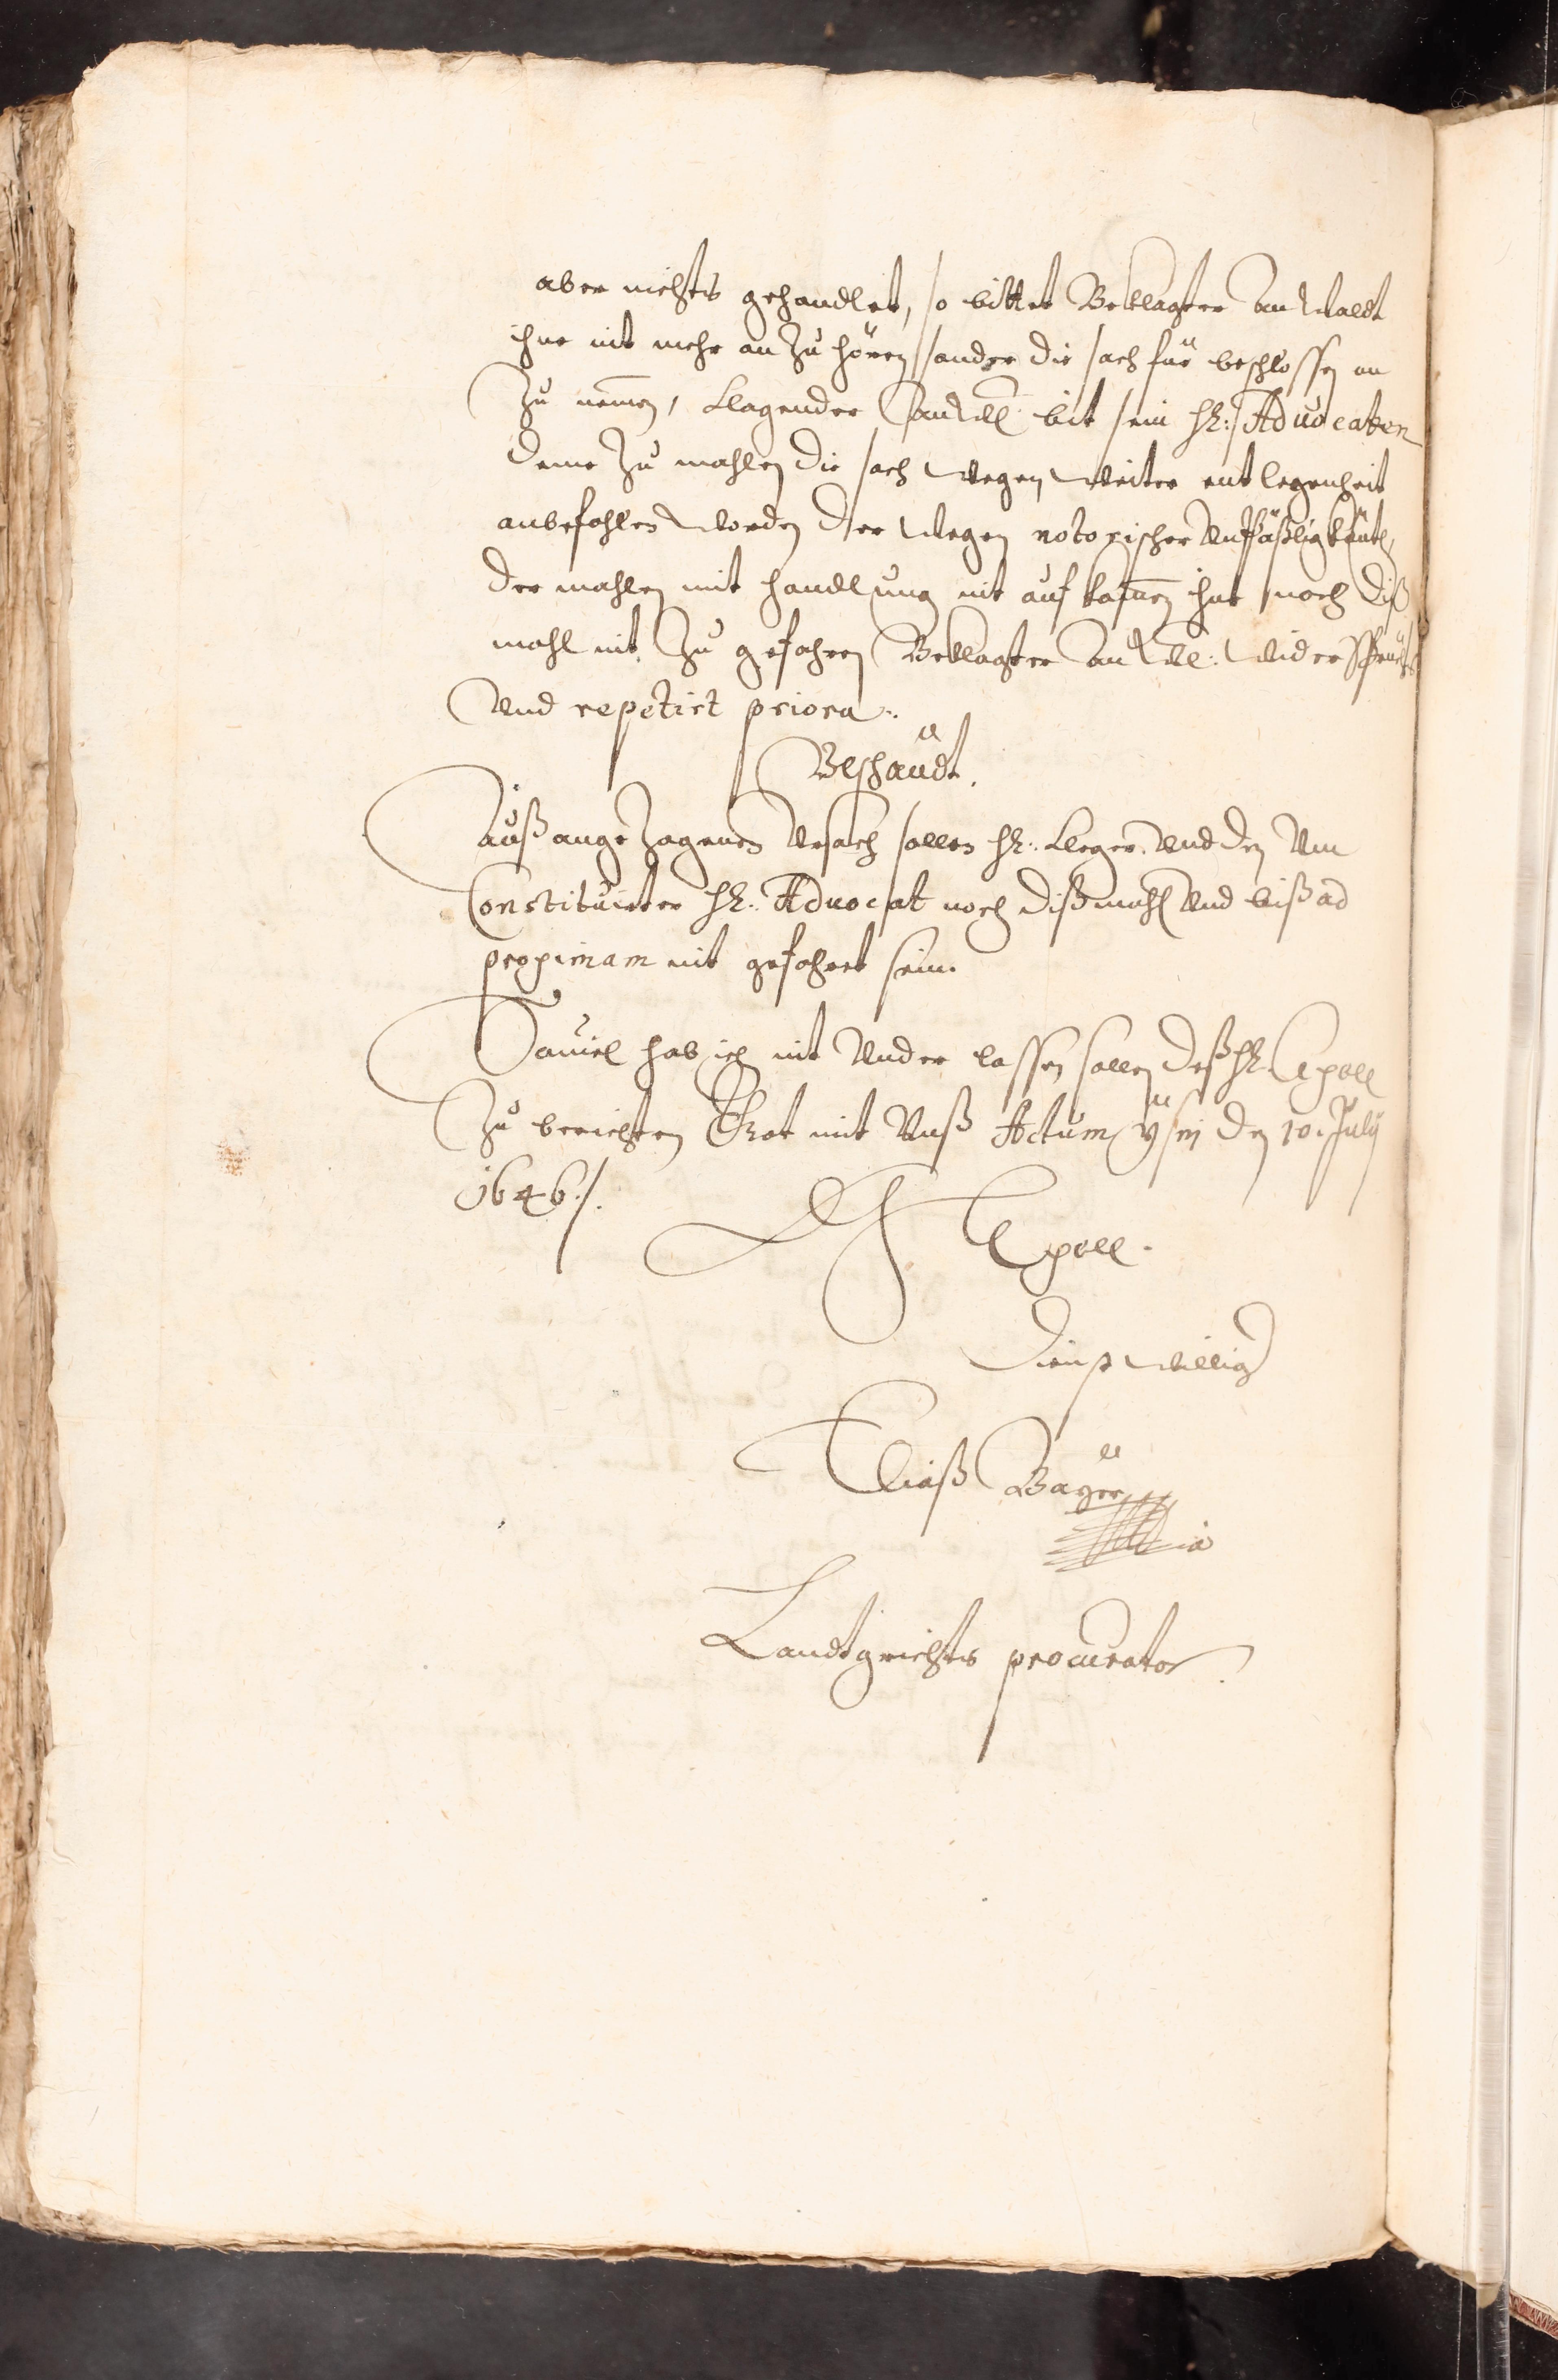 aber nichts gehandlet, so bittet Beklagter Anwaldt
ihne nit mehr an Zu hören sonder die sach für beschlossen an
Zu nemen, Klagender Anwldt bit sein H: Advocaten
deme Zu mahlen die sach wegen weiter entlegenheit
anbefohlen worden der wegen notorischer Unpäßligkäit
der mahlen mit handlung nit auf komen ihne noch diß
mahl nit Zu gefahren Beklagter Anwld: widersprücht
und repetirt priora.
Beschäidt.
Auß angezogenen Ursach sollen H: Kleger und den Un
Constituirter H: Advocat noch dißmahl und biß ad
proximam nit gefahrt sein.
Souiel hab ich nit under lassen sollen deß H
Zu berichten Gott mit Unß Actum den 10. July
1646 /.
dienstwillig
Eliaß Bayer
Landtgrichts procurator